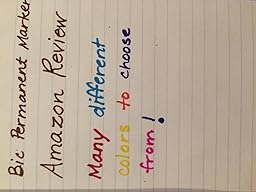 Bic Permanent Marker
Amazon Review
Many different
colors to choose
from!